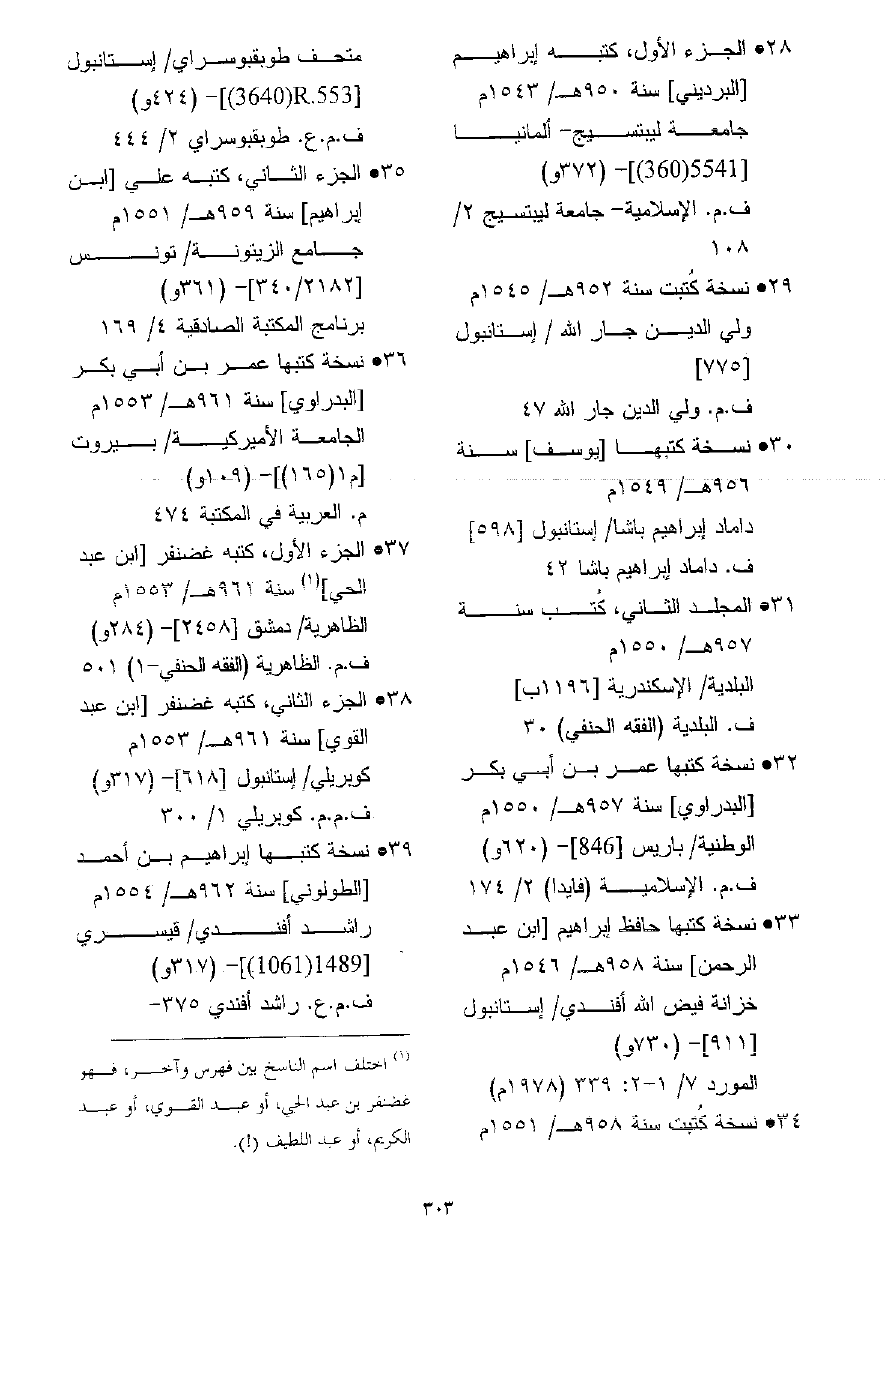 ٢٨• الجزء الأول، كتبه إبراهيم
[البرديني] سنة ٩٥٠هـ/ ١٥٤٣م
جامعة ليبتسيج- ألمانيا
[5541(360)]- (٣٧٢و)
ف.م. الإسلامية- جامعة ليبتسيج ٢/
١٠٨
٢٩• نسخة كُتبت سنة ٩٥٢هـ/ ١٥٤٥م
ولي الدين جار الله / إستانبول
[٧٧٥]
ف.م. ولي الدين جار الله ٤٧
٣٠• نسخة كتبها [يوسف] سنة
٩٥٦هـ/ ١٥٤٩م
داماد إبراهيم باشا/ إستانبول [٥٩٨]
ف. داماد إبراهيم باشا ٤٢
٣١• المجلد الثاني، كُتب سنة
٩٥٧هـ/ ١٥٥٠م
البلدية/ الإسكندرية [١١٩٦ب]
ف. البلدية (الفقه الحنفي) ٣٠
٣٢• نسخة كتبها عمر بن أبي بكر
[البدراوي] سنة ٩٥٧هـ/ ١٥٥٠م
الوطنية/ باريس [846]- (٦٢٠و)
ف.م. الإسلامية (فايدا) ٢/ ١٧٤
٣٣• نسخة كتبها حافظ إبراهيم [ابن عبد
الرحمن] سنة ٩٥٨هـ/ ١٥٤٦م
خزانة فيض الله أفندي/ إستانبول
[٩١١]- (٧٣٠و)
المورد ٧/ ١-٢: ٣٣٩ (١٩٧٨م)
٣٤• نسخة كُتبت سنة ٩٥٨هـ/ ١٥٥١م
متحف طوبقبوسراي/ إستانبول
[3640)R.553)]- (٤٢٤و)
ف.م.ع. طوبقبوسراي ٢/ ٤٤٤
٣٥• الجزء الثاني، كتبه علي [ابن
إبراهيم] سنة ٩٥٩هـ/ ١٥٥١م
جامع الزيتونة/ تونس
[٣٤٠/٢١٨٢]- (٣٦١و)
برنامج المكتبة الصادقية ٤/ ١٦٩
٣٦• نسخة كتبها عمر بن أبي بكر
[البدراوي] سنة ٩٦١هـ/ ١٥٥٣م
الجامعة الأميركية/ بيروت
[م١(١٦٥)]- (١٠٩و)
م. العربية في المكتبة ٤٧٤
٣٧• الجزء الأول، كتبه غضنفر [ابن عبد
الحي](١) سنة ٩٦١هـ/ ١٥٥٣م
الظاهرية/ دمشق [٢٤٥٨]- (٢٨٤و)
ف.م. الظاهرية (الفقه الحنفي-١) ٥٠١
٣٨• الجزء الثاني، كتبه غضنفر [ابن عبد
القوي] سنة ٩٦١هـ/ ١٥٥٣م
كوبريلي/ إستانبول [٦١٨]- (٣١٧و)
ف.م.م. كوبريلي ١/ ٣٠٠
٣٩• نسخة كتبها إبراهيم بن أحمد
[الطولوني] سنة ٩٦٢هـ/ ١٥٥٤م
راشد أفندي/ قيسري
[1489(1061)]- (٣١٧و)
ف.م.ع. راشد أفندي ٣٧٥-
(١) اختلف اسم الناسخ بين فهرس وآخر، فهو
غضنفر بن عبد الحي، أو عبد القوي، أو عبد
الكريم، أو عبد اللطيف (!).
٣٠٣